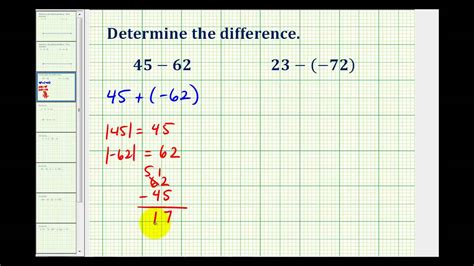 Determine the difference.
45 − 62    23 − (−72)
45 + (−62)
|45| = 45
|−62| = 62
5 1
62
− 45
17